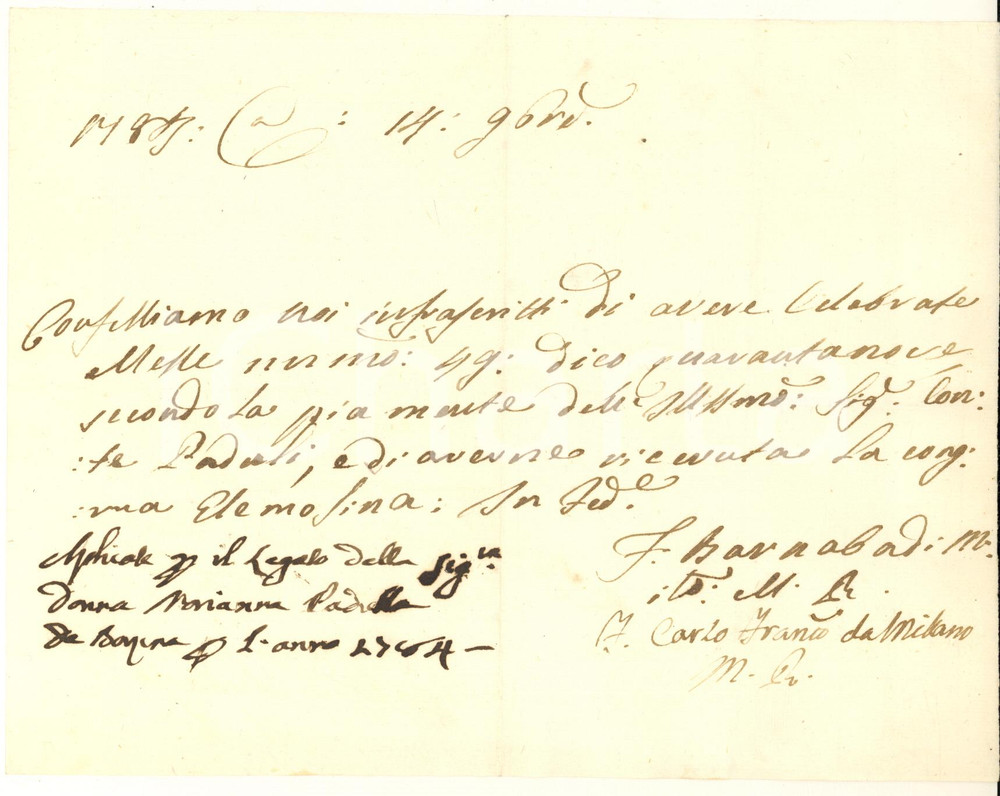 14: 9bre.
Confessiamo noi infrascritti di avere Celebrate
Messe nummo: 49: dico quarantanove
secondo La pia mente dell' Illssmo: Sigr. Con:
:te Paduli, e di averne ricevuta La cong:
:rua Elemosina: In Fede.
F. Barnaba di M.
:ito: M. Pr.
F. Carlo Franco da Milano
M. Pr.
Aplicate p il Legato della Sigra
donna Marianna
p L'anno 1784 —